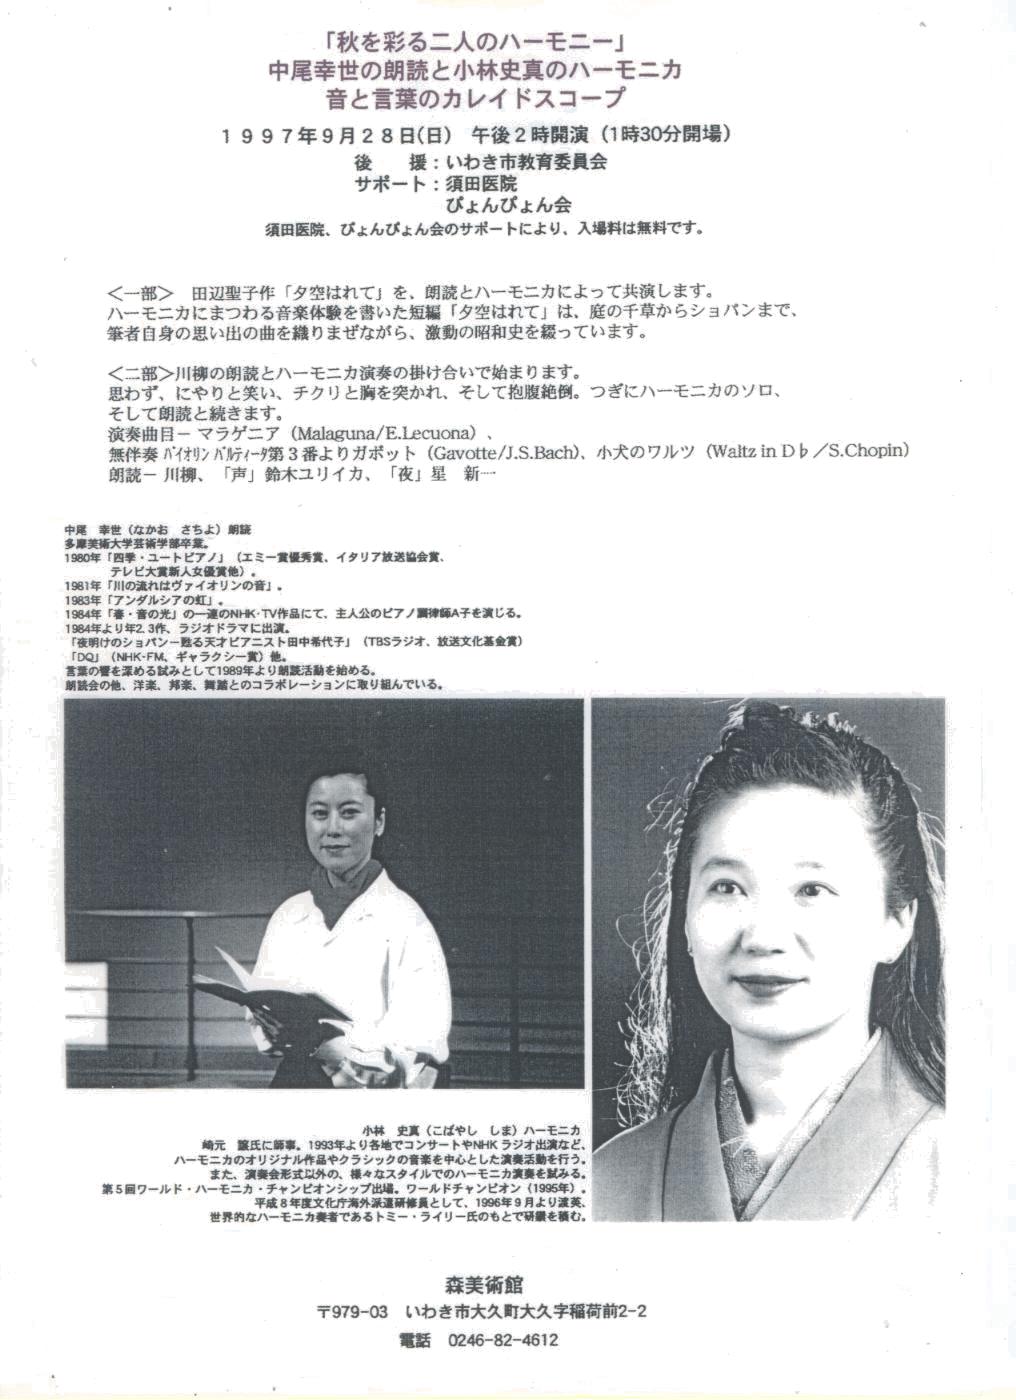 「秋を彩る二人のハーモニー」
中尾幸世の朗読と小林史真のハーモニカ
音と言葉のカレイドスコープ
１９９７年９月２８日(日)　午後２時開演（1時30分開場）
後　　援：いわき市教育委員会
サポート：須田医院
ぴょんぴょん会
須田医院、ぴょんぴょん会のサポートにより、入場料は無料です。
＜一部＞　田辺聖子作「夕空はれて」を、朗読とハーモニカによって共演します。
ハーモニカにまつわる音楽体験を書いた短編「夕空はれて」は、庭の千草からショパンまで、
筆者自身の思い出の曲を織りまぜながら、激動の昭和史を綴っています。
＜二部＞川柳の朗読とハーモニカ演奏の掛け合いで始まります。
思わず、にやりと笑い、チクリと胸を突かれ、そして抱腹絶倒。つぎにハーモニカのソロ、
そして朗読と続きます。
演奏曲目－ マラゲニア（Malaguna/E.Lecuona）、
無伴奏 ﾊﾞｲｵﾘﾝ ﾊﾟﾙﾃｨｰﾀ第３番よりガボット（Gavotte/J.S.Bach)、小犬のワルツ（Waltz in D♭／S.Chopin）
朗読－ 川柳、「声」鈴木ユリイカ、「夜」星　新一
中尾　幸世（なかお　さちよ）朗読
多摩美術大学芸術学部卒業。
1980年「四季・ユートピアノ」（エミー賞優秀賞、イタリア放送協会賞、
テレビ大賞新人女優賞他）。
1981年「川の流れはヴァイオリンの音」。
1983年「アンダルシアの虹」。
1984年「春・音の光」の一連のNHK・TV作品にて、主人公のピアノ調律師A子を演じる。
1984年より年2.3作、ラジオドラマに出演。
「夜明けのショパン－甦る天才ピアニスト田中希代子」（TBSラジオ、放送文化基金賞）
「DQ」（NHK-FM、ギャラクシー賞）他。
言葉の響を深める試みとして1989年より朗読活動を始める。
朗読会の他、洋楽、邦楽、舞踏とのコラボレーションに取り組んでいる。
小林　史真（こばやし　しま）ハーモニカ
崎元　譲氏に師事。1993年より各地でコンサートやNHK ラジオ出演など、
ハーモニカのオリジナル作品やクラシックの音楽を中心とした演奏活動を行う。
また、演奏会形式以外の、様々なスタイルでのハーモニカ演奏を試みる。
第５回ワールド・ハーモニカ・チャンピオンシップ出場。ワールドチャンピオン（1995年）。
平成８年度文化庁海外派遣研修員として、1996年９月より渡英、
世界的なハーモニカ奏者であるトミー・ライリー氏のもとで研鑽を積む。
森美術館
〒979-03　いわき市大久町大久字稲荷前2-2
電話　0246-82-4612